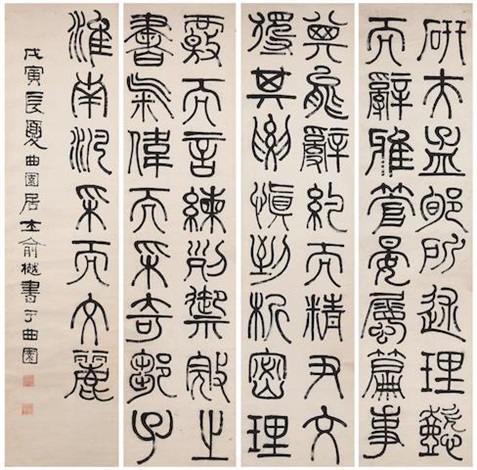 研夫孟郇所述理懿
而辭雅管晏屬篇事
其能辭約而精尹文
得其要慎到析密理
覈而言練列御寇之
書氣偉而采奇鄒子
淮南汎采而文麗
戊寅長夏曲園居士俞樾書于曲園